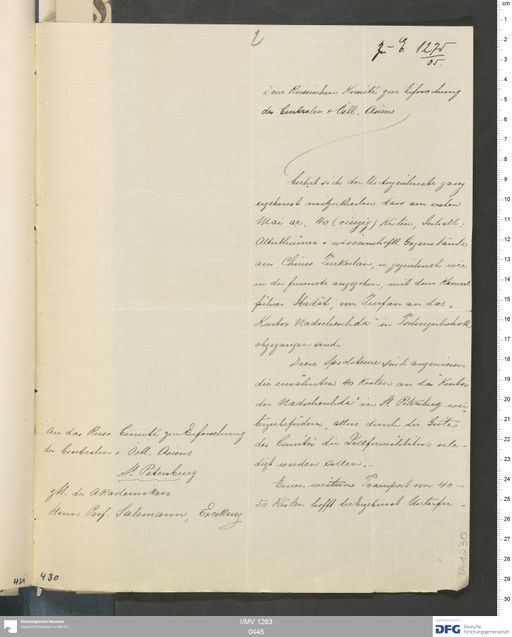 2
zu E. 1275/05.
Dem Russischen Komité zur Erforschung
des Centralen & Oestl. Asiens
beehrt sich der Unterzeichnete ganz
ergebenst mitzutheilen dass am ersten
Mai ar. 40 (vierzig) Kisten, Inhalt:
Alterthümer & wissenschaftl. Gegenstände
aus Chines. Turkestan, u. gezeichnet wie
in der fussnote angegeben, mit dem Kameel
führer Madât, von Turfan an das
Kontor Nadschenhda" in
abgegangen sind.
Diese Spediteure sind angewiesen
die erwähnten 40 Kisten an das Kontor
der Nadschenhda" in St. Petersburg wei
terzubefördern, allwo durch die Güte
des Comités die Zollformalitäten erle-
digt werden sollen.
Einen weiteren Transport von 40-
50 Kisten hofft der ergebenst Unterfer-
An das Russ. Comité zur Erforschung
des Centralen & Oestl. Asiens
St. Petersburg
z.H. des Akademikers
Herrn Prof. Salemann, Excellenz
430
I/MV 1263
0445
Ethnologisches Museum
Staatliche Museen zu Berlin
DFG Deutsche
Forschungsgemeinschaft